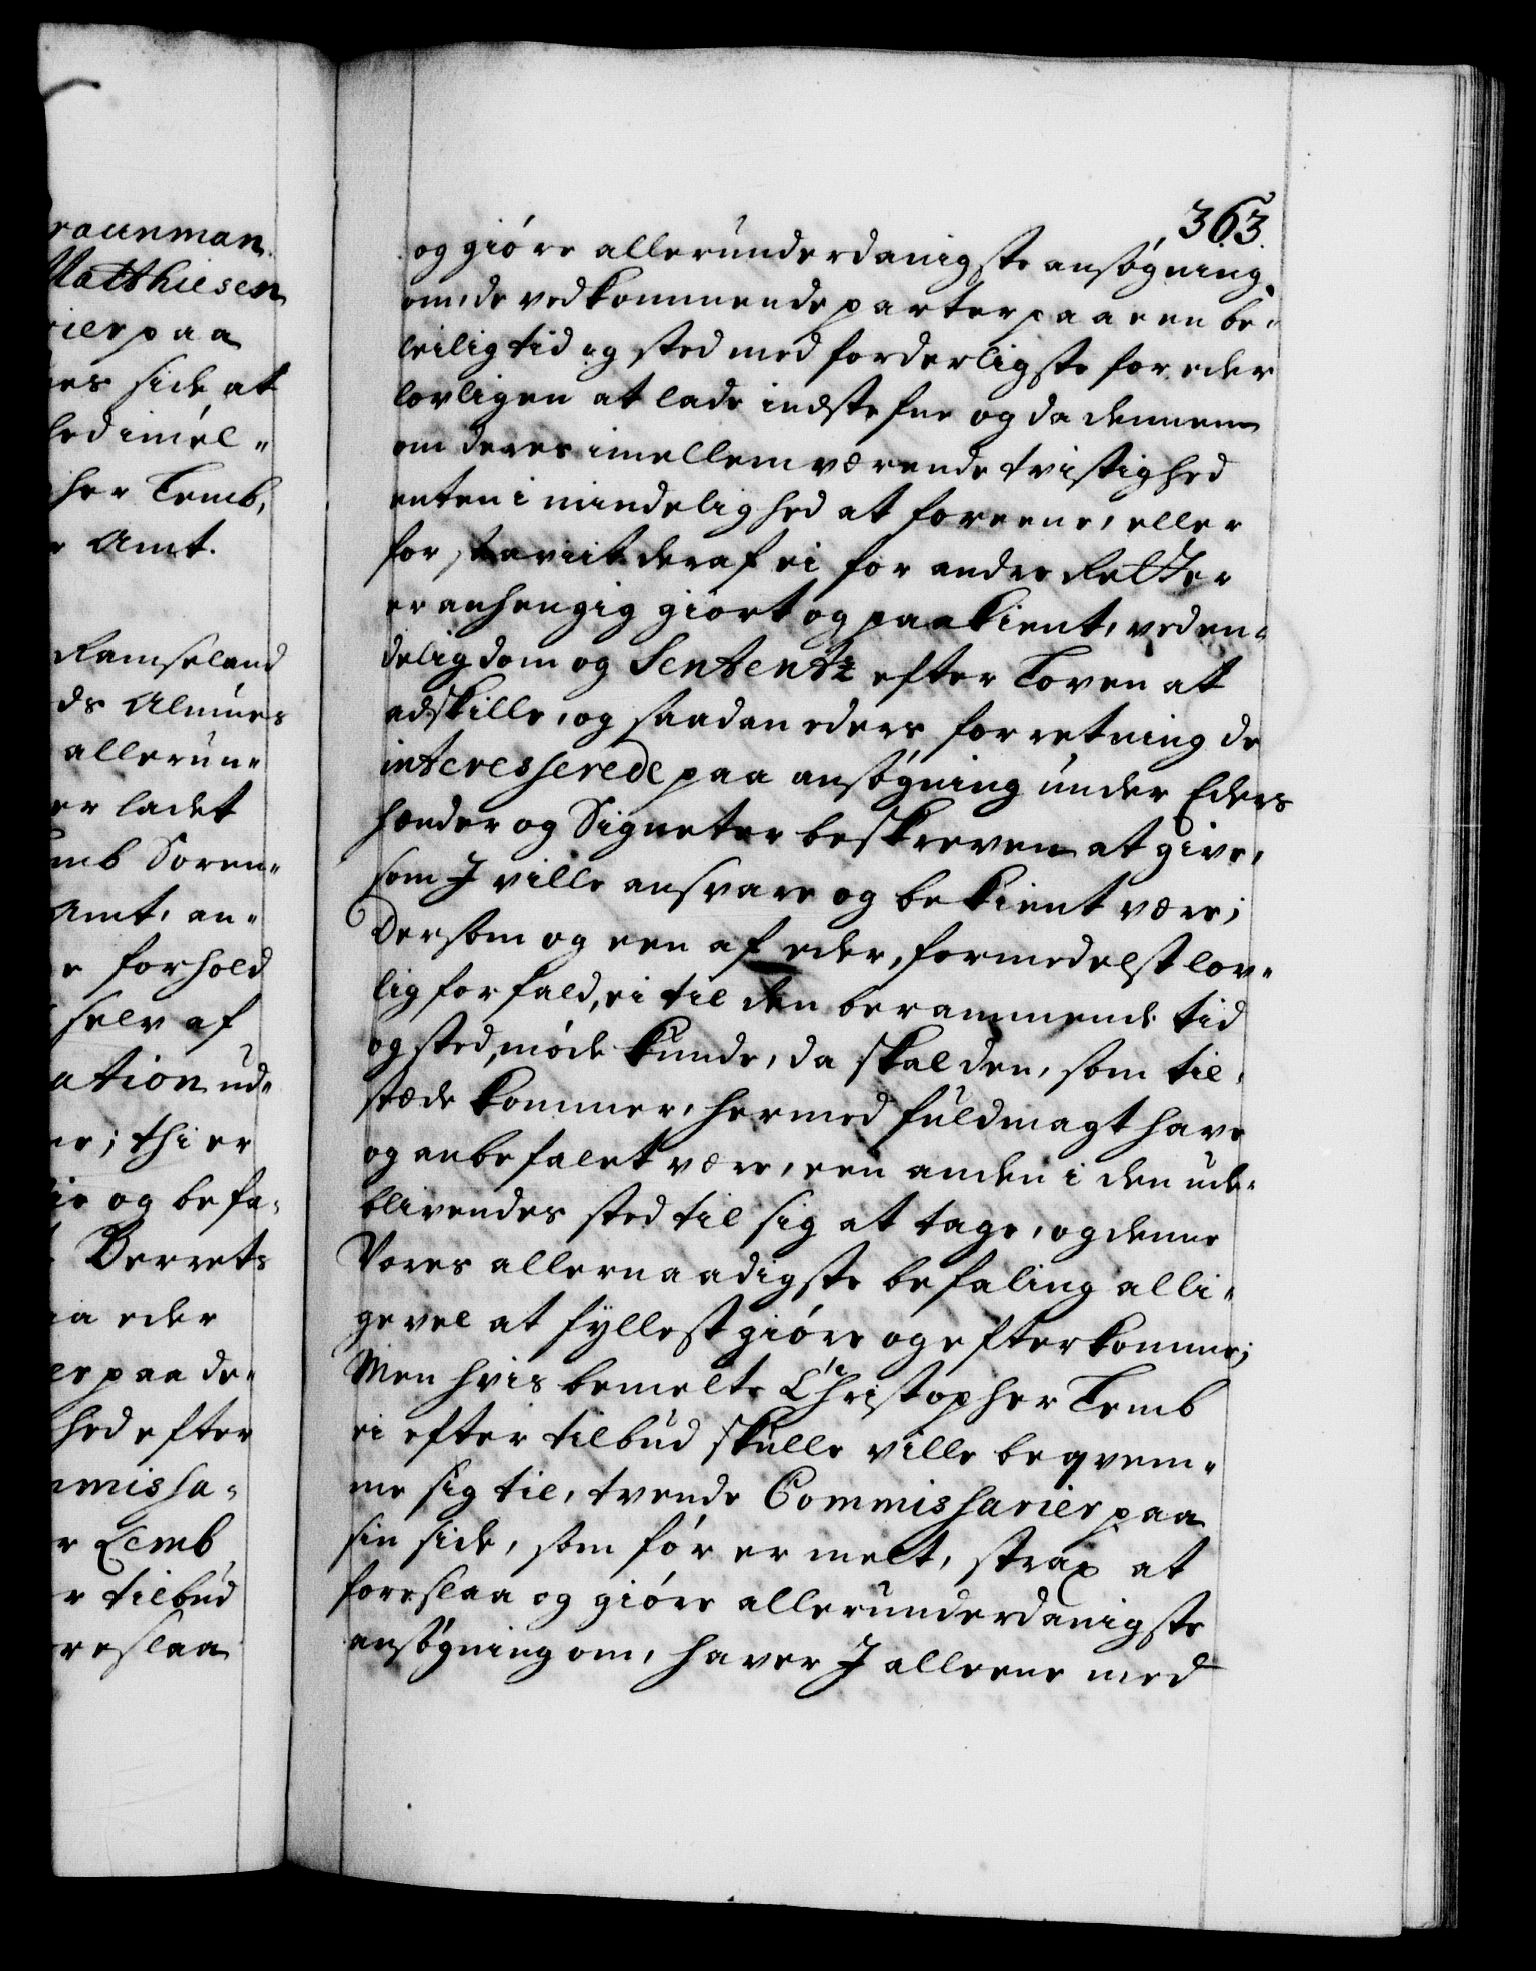 raunman
Matthiesen
rier paa
es side, at
hed imel-
her Lemb,
r Amt.
Ramseland
ds Alnues
allerun-
er ladet
mb Soren-
Amt, an-
e forhold
selv af
ation ud-
re; thi er
ie og befa-
Berrets
ia eder
er paa de-
hed efter
mmissa-
r Lemb
r tilbud
reslaa
363.
og giöre allerunderdanigste ansögning
om, de vedkommende parter paa een be-
leilig tid og sted med forderligste for eder
lovligen at lade indstefne og da dennem
om deres imellemværende tvistighed
enten i mindelighed at foreene, eller
for saavit deraf ei for andre Retter
er anhengig giort og paakient, ved en-
delig dom og Sententz efter Loven at
adskille, og saadan eders forretning de
interesserede paa ansögning under Eders
hænder og Signeter beskreven at give,
som I ville ansvare og bekient være;
Dersom og een af eder, formedelst lov-
lig forfald, ei til den berammende tid
og sted, möde kunde, da skal den, som til-
stæde kommer, hermed fuldmagt have
og anbefalet være, een anden i den ude-
blivendes sted til sig at tage, og denne
Vores allernaadigste befaling alli-
gevel at fyllest giöre og efterkomme;
Men hvis bemelte Christopher Lemb
ei efter tilbud skulle ville beqvem-
me sig til, tvende Commissarier paa
sin side, som för er melt, strax at
foreslaa og giöre allerunderdanigste
ansögning om, haver I alleene med